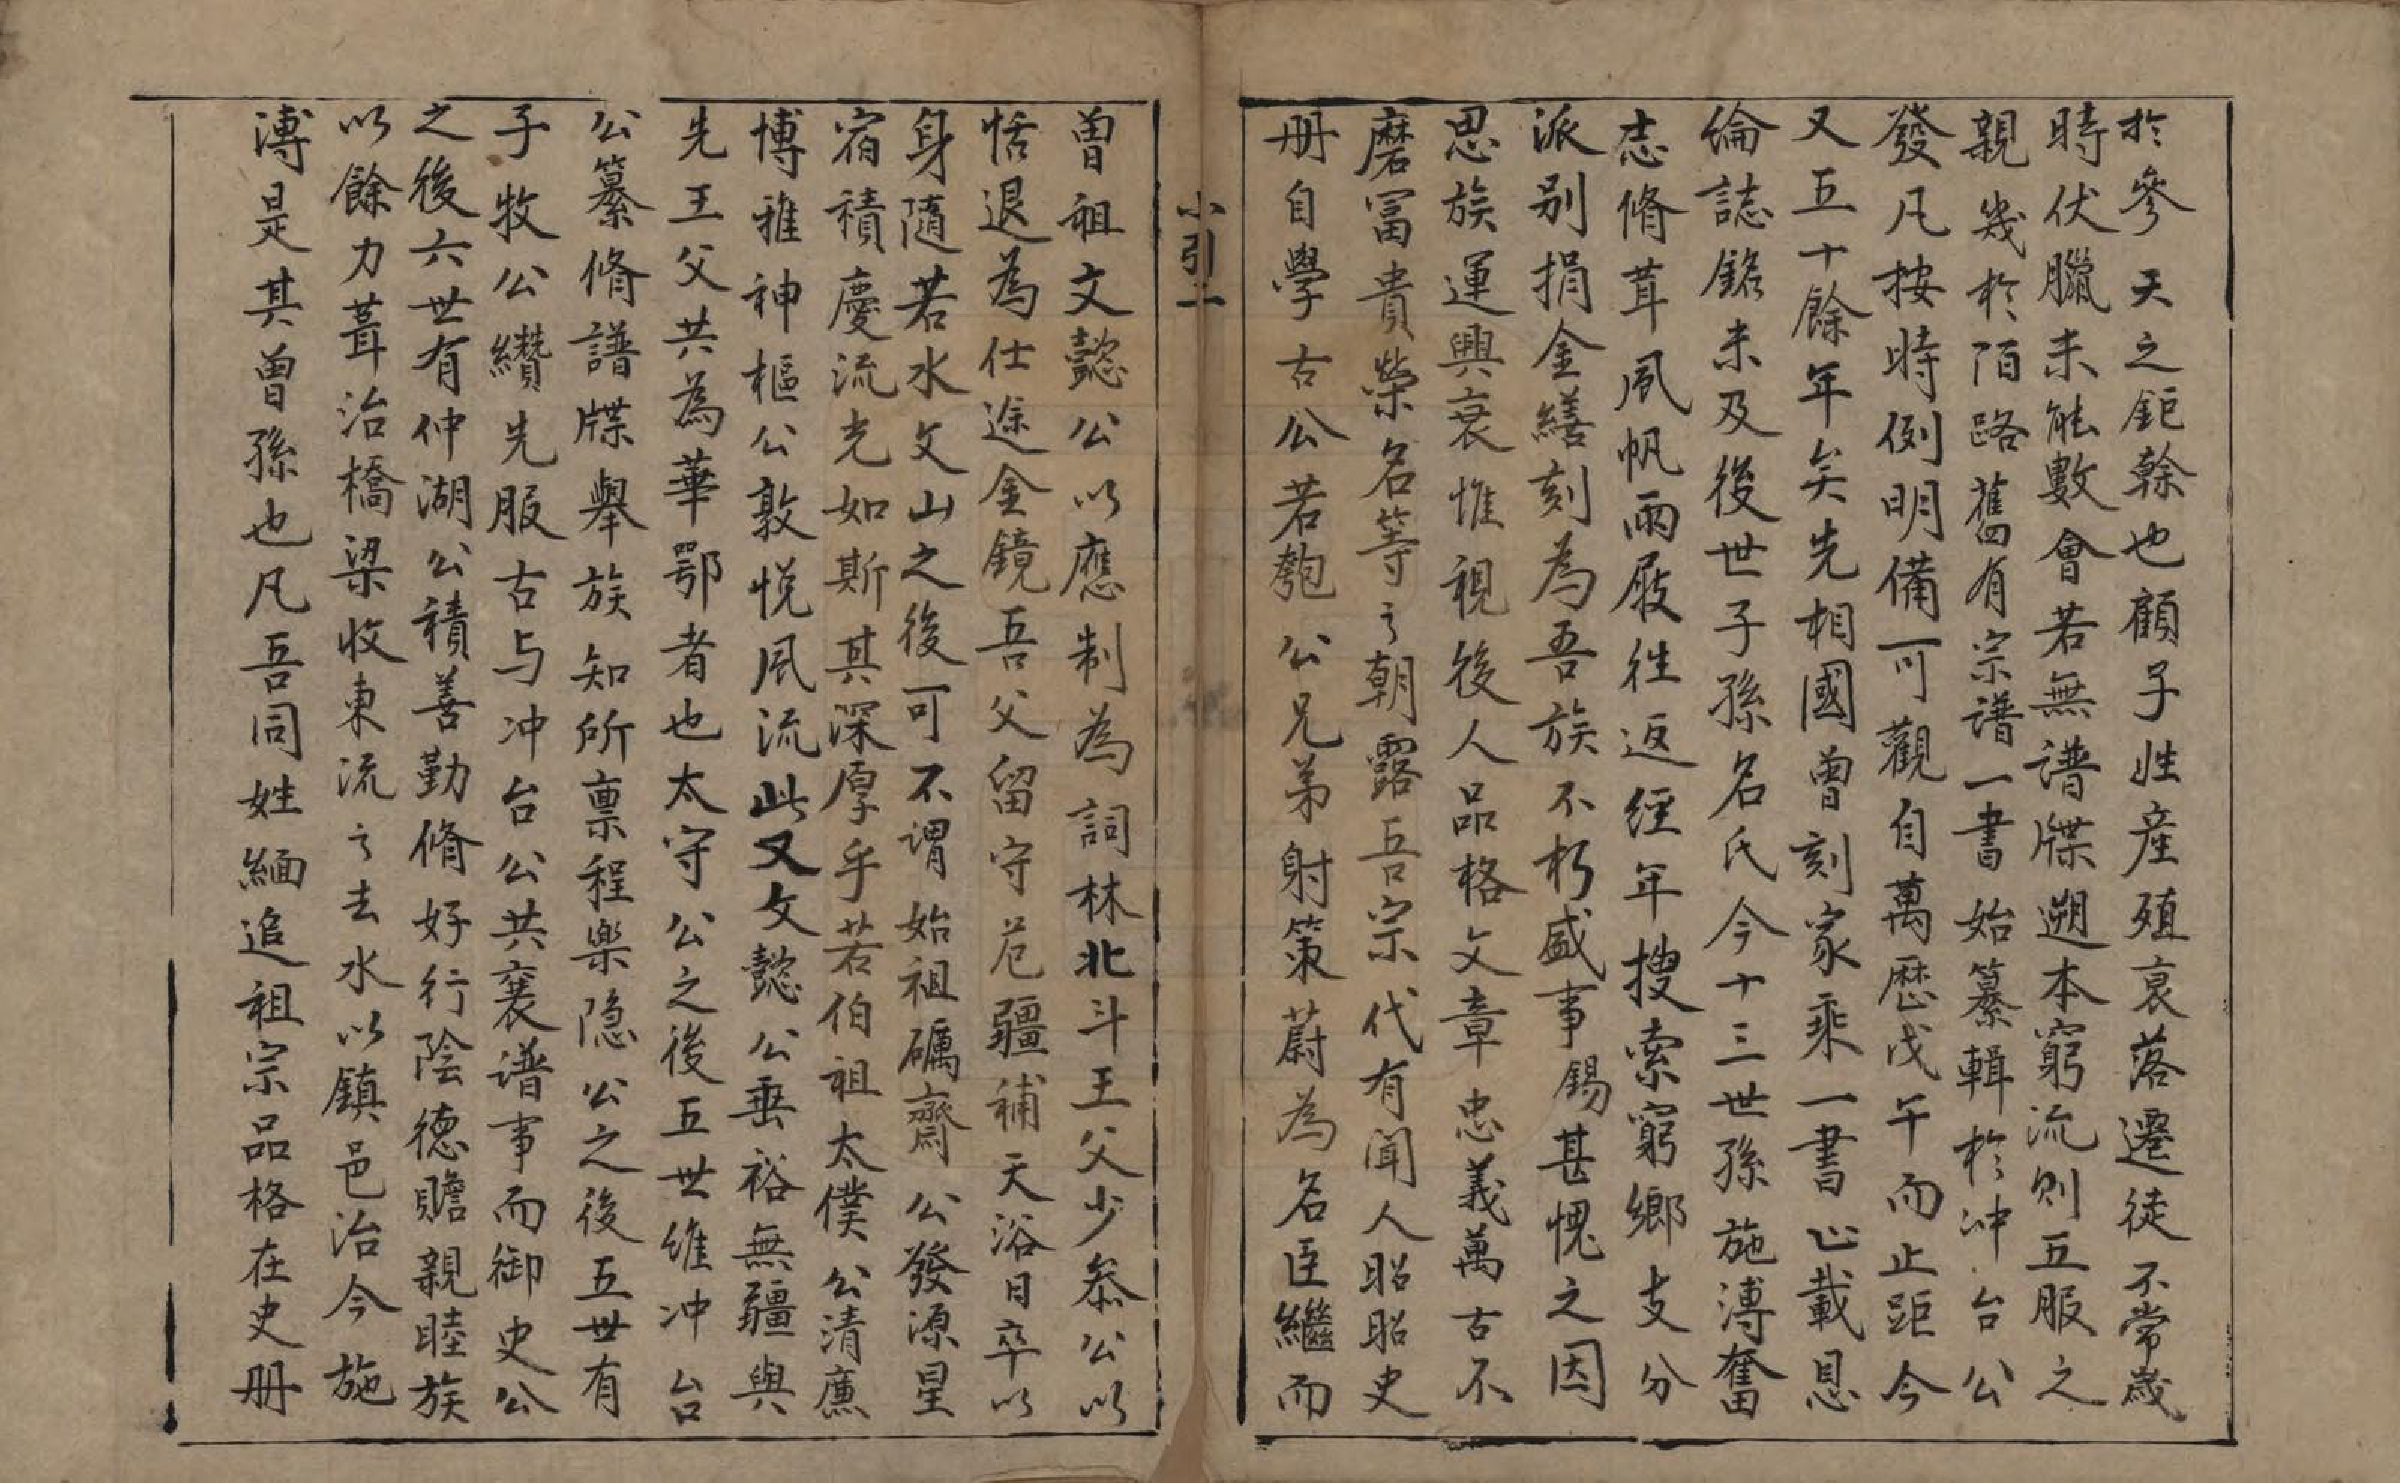 於參天之鉅榦也顧子姓產殖衰落遷徙不常歲
時伏臘未能數會若無譜牒遡本窮流則五服之
親幾於陌路舊有宗譜一書始纂輯於冲台公
發凡按時例明備可觀自萬歷戊午而止距今
又五十餘年矣先相國曾刻家乘一書止載恩
綸誌銘未及後世子孫名氏今十三世孫施溥奮
志脩葺風帆雨屐徃返經年搜索窮鄉支分
派别捐金繕刻為吾族不朽盛事錫甚愧之因
思族運興衰惟視後人品格文章忠義萬古不
磨冨貴榮名等之朝露吾宗代有聞人昭昭史
册自學古公若匏公兄弟射策蔚為名臣繼而
小引二
曾祖文懿公以應制為詞林北斗王父少叅公以
恬退為仕途金鏡吾父留守危疆補天浴日卒以
身隨若水文山之後可不謂始祖礪齋公發源星
宿積慶流光如斯其深厚乎若伯祖太僕公清廉
博雅神樞公敦悦風流此又文懿公垂裕無疆與
先王父共為華鄂者也太守公之後五世維冲台
公纂脩譜牒舉族知所禀程樂隐公之後五世有
子牧公纘先服古与冲台公共襄谱事而御史公
之後六世有仲湖公積善勤脩好行陰德贍親睦族
以餘力葺治橋梁收東流之去水以鎮邑治今施
溥是其曾孫也凡吾同姓緬追祖宗品格在史册